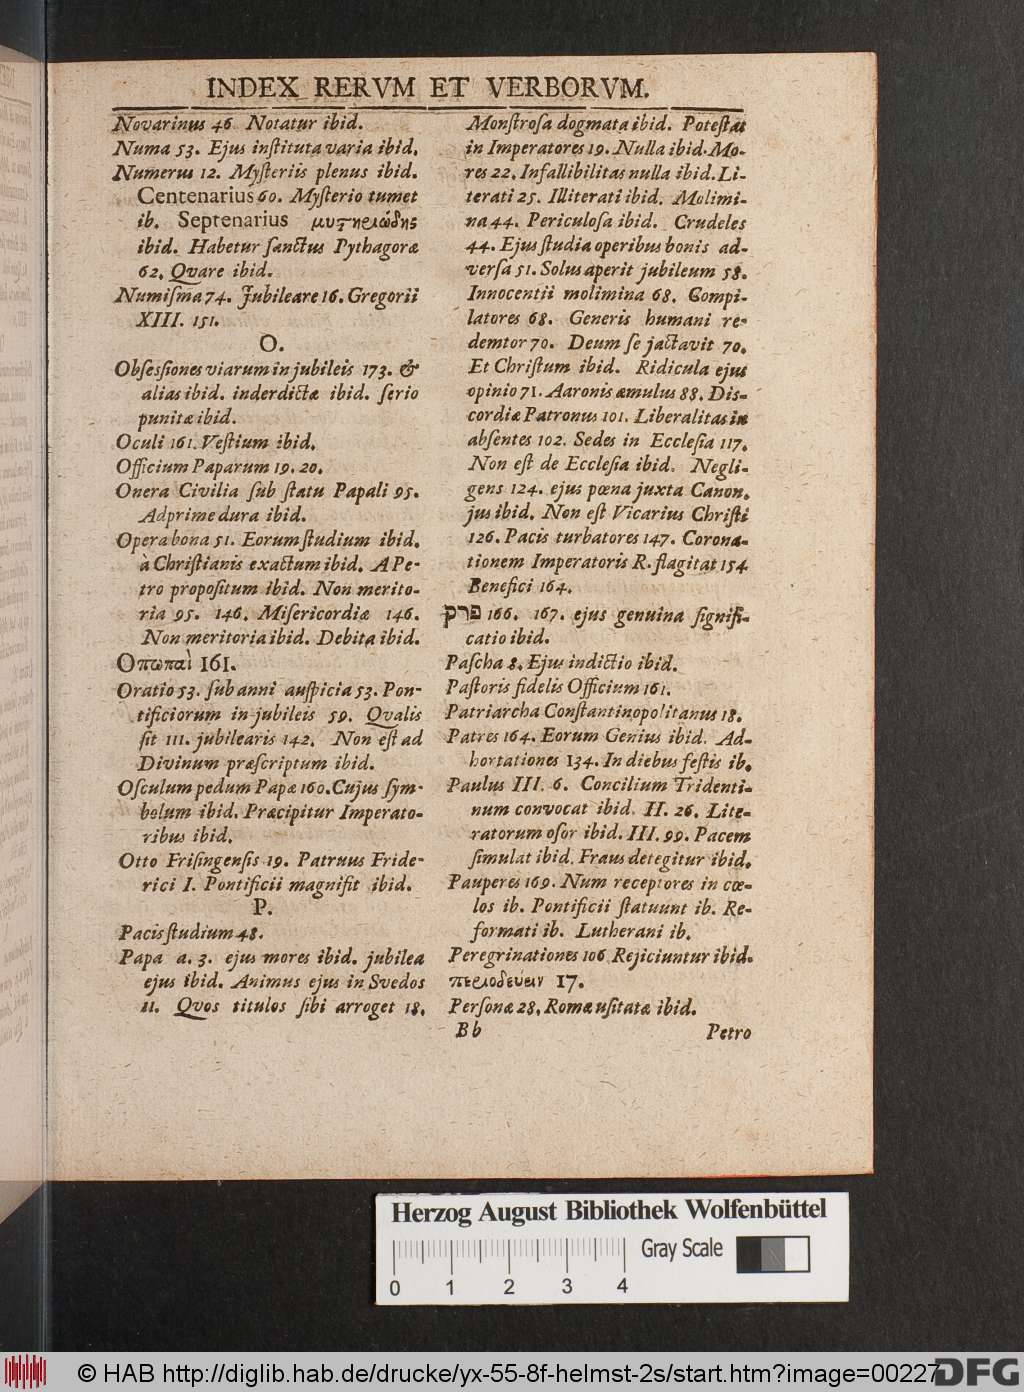 INDEX RERVM ET VERBORVM.
Novarinus 46. Notatur ibid.
Numa 53. Ejus inſtituta varia ibid.
Numerus 12. Myſteriis plenus ibid.
Centenarius 60. Myſterio tumet
ib. Septenarius μυστηριώδης
ibid. Habetur ſanctus Pythagoræ
62. Qvare ibid.
Numiſma 74. Jubileare 16. Gregorii
XIII. 151.
O.
Obſeſſiones viarum in jubileis 173. &
alias ibid. inderdictæ ibid. ſerio
punitæ ibid.
Oculi 161. Veſtium ibid.
Officium Paparum 19. 20.
Onera Civilia ſub ſtatu Papali 95.
Adprime dura ibid.
Opera bona 51. Eorum ſtudium ibid.
à Chriſtianis exactum ibid. A Pe-
tro propoſitum ibid. Non merito-
ria 95. 146. Miſericordiæ 146.
Non meritoria ibid. Debita ibid.
Οπωπαὶ 161.
Oratio 53. ſub anni auſpicia 53. Pon-
tificiorum in jubileis 59. Qvalis
ſit 111. jubilearis 142. Non eſt ad
Divinum præſcriptum ibid.
Oſculum pedum Papæ 160. Cujus ſym-
bolum ibid. Præcipitur Imperato-
ribus ibid.
Otto Friſingenſis 19. Patruus Fride-
rici I. Pontificii magnifit ibid.
P.
Pacis ſtudium 48.
Papa a. 3. ejus mores ibid. jubilea
ejus ibid. Animus ejus in Svedos
11. Qvos titulos ſibi arroget 18.
Monſtroſa dogmata ibid. Poteſtas
in Imperatores 19. Nulla ibid. Mo-
res 22. Infallibilitas nulla ibid. Li-
terati 25. Illiterati ibid. Molimi-
na 44. Periculoſa ibid. Crudeles
44. Ejus ſtudia operibus bonis ad-
verſa 51. Solus aperit jubileum 58.
Innocentii molimina 68. Compi-
latores 68. Generis humani re-
demtor 70. Deum ſe jactavit 70.
Et Chriſtum ibid. Ridicula ejus
opinio 71. Aaronis æmulus 88. Diſ-
cordiæ Patronus 101. Liberalitas in
abſentes 102. Sedes in Eccleſia 117.
Non eſt de Eccleſia ibid. Negli-
gens 124. ejus pœna juxta Canon.
jus ibid. Non eſt Vicarius Chriſti
126. Pacis turbatores 147. Corona-
tionem Imperatoris R. flagitat 154
Benefici 164.
פרק 166. 167. ejus genuina ſignifi-
catio ibid.
Paſcha 8. Ejus indictio ibid.
Paſtoris fidelis Officium 161.
Patriarcha Conſtantinopolitanus 18.
Patres 164. Eorum Genius ibid. Ad-
hortationes 134. In diebus feſtis ib.
Paulus III. 6. Concilium Tridenti-
num convocat ibid. II. 26. Lite-
ratorum oſor ibid. III. 99. Pacem
ſimulat ibid. Fraus detegitur ibid.
Pauperes 169. Num receptores in cœ-
los ib. Pontificii ſtatuunt ib. Re-
formati ib. Lutherani ib.
Peregrinationes 106 Rejiciuntur ibid.
περιοδεύειν 17.
Perſonæ 28. Romæ uſitatæ ibid.
Bb Petro
Herzog August Bibliothek Wolfenbüttel
Gray Scale
0 1 2 3 4
© HAB http://diglib.hab.de/drucke/yx-55-8f-helmst-2s/start.htm?image=00227
DFG